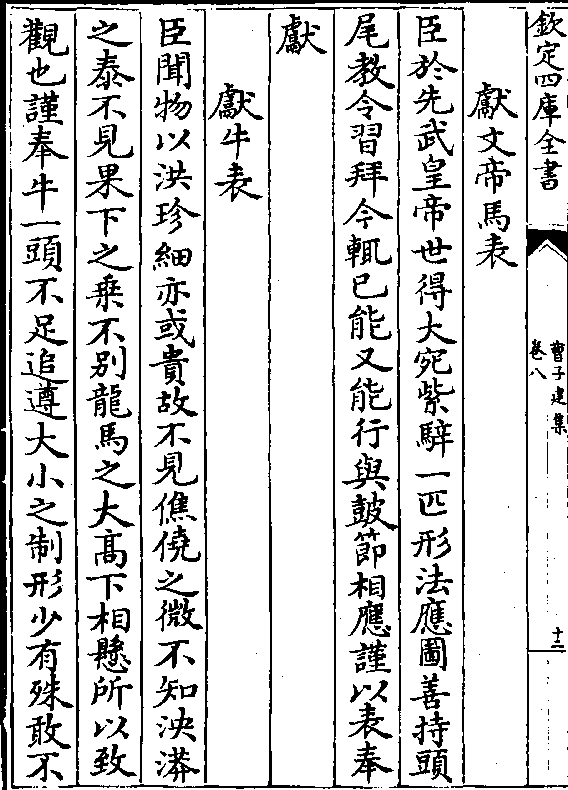 欽定四庫全書
曹子建集
卷八
十二
獻文帝馬表
臣於先武皇帝世得大宛紫騂一匹形法應圖善持頭
尾教令習拜今輒已能又能行與鼓節相應謹以表奉
獻
獻牛表
臣聞物以洪珍細亦或貴故不見僬僥之微不知泱漭
之泰不見果下之乗不别龍馬之大髙下相懸所以致
觀也謹奉牛一頭不足追遵大小之制形少有殊敢不